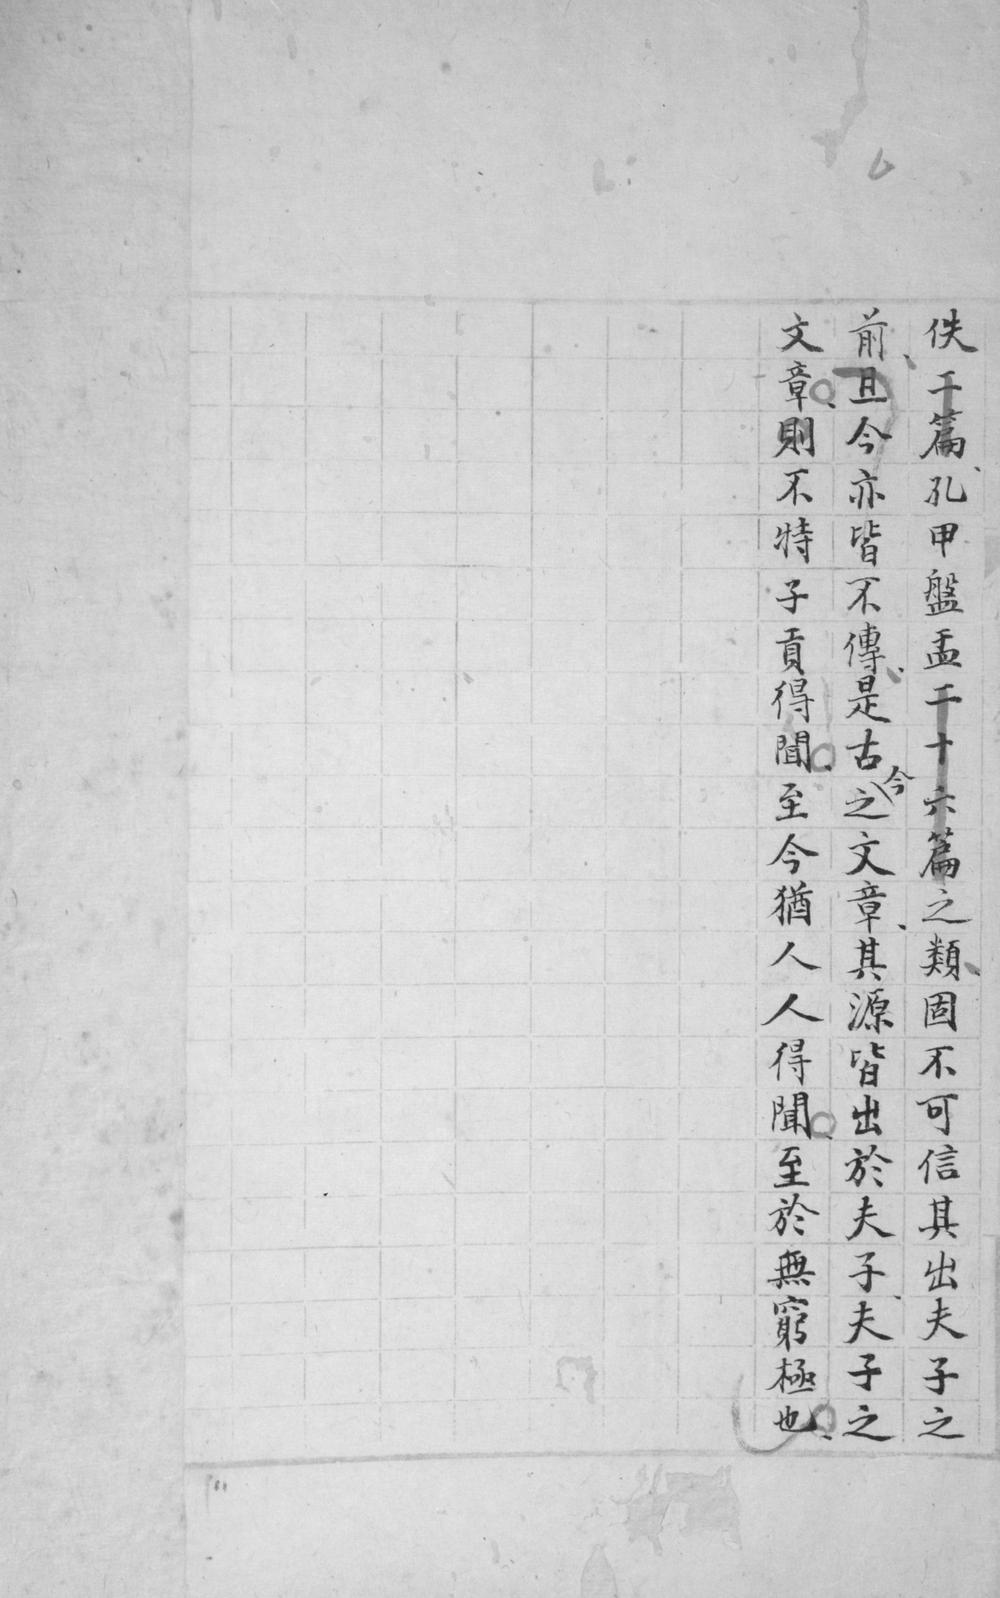 佚二篇孔甲盤盂二十六篇之類固不可信其出夫子之
前且今亦皆不傳是古今之文章其源皆出於夫子夫子之
文章則不特子貢得聞至今猶人人得聞至於無窮極也